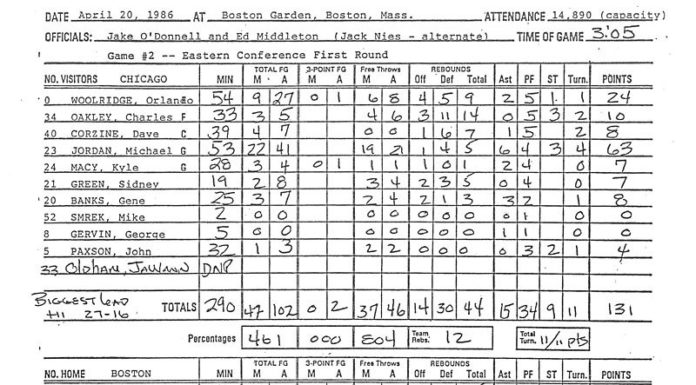 DATE April 20, 1986 AT Boston Garden, Boston, Mass. ATTENDANCE 14,890 (capacity)
OFFICIALS: Jake O'Donnell and Ed Middleton (Jack Nies - alternate) TIME OF GAME 3:05
Game #2 -- Eastern Conference First Round
TOTAL FG 3-POINT FG Free Throws REBOUNDS
NO. VISITORS CHICAGO MIN M A M A M A Off Def Total Ast PF ST Turn. POINTS
0 WOOLRIDGE, Orlando 54 9 27 0 1 6 8 4 5 9 2 5 1 1 24
34 OAKLEY, Charles F 33 3 5 4 6 3 11 14 0 5 3 2 10
40 CORZINE, Dave C 39 4 7 0 0 1 6 7 1 5 2 8
23 JORDAN, Michael G 53 22 41 19 21 1 4 5 6 4 3 4 63
24 MACY, Kyle G 28 3 4 0 1 1 1 1 0 1 2 4 0 7
21 GREEN, Sidney 19 2 8 3 4 2 3 5 0 4 0 7
20 BANKS, Gene 25 3 7 2 4 2 1 3 3 2 1 8
52 SMREK, Mike 2 0 0 0 0 0 0 0 0 1 0 0
8 GERVIN, George 5 0 0 0 0 0 0 0 1 1 0 0
5 PAXSON, John 32 1 3 2 2 0 0 0 0 3 2 1 4
33 Oldham, Jawann DNP
BIGGEST LEAD
+11 27-16 TOTALS 290 47 102 0 2 37 46 14 30 44 15 34 9 11 131
Percentages 461 000 804 Team Rebs. 12 Total Turn. 11/11 pts
TOTAL FG 3-POINT FG Free Throws REBOUNDS
NO. HOME BOSTON MIN M A M A M A Off Def Total Ast PF ST Turn. POINTS